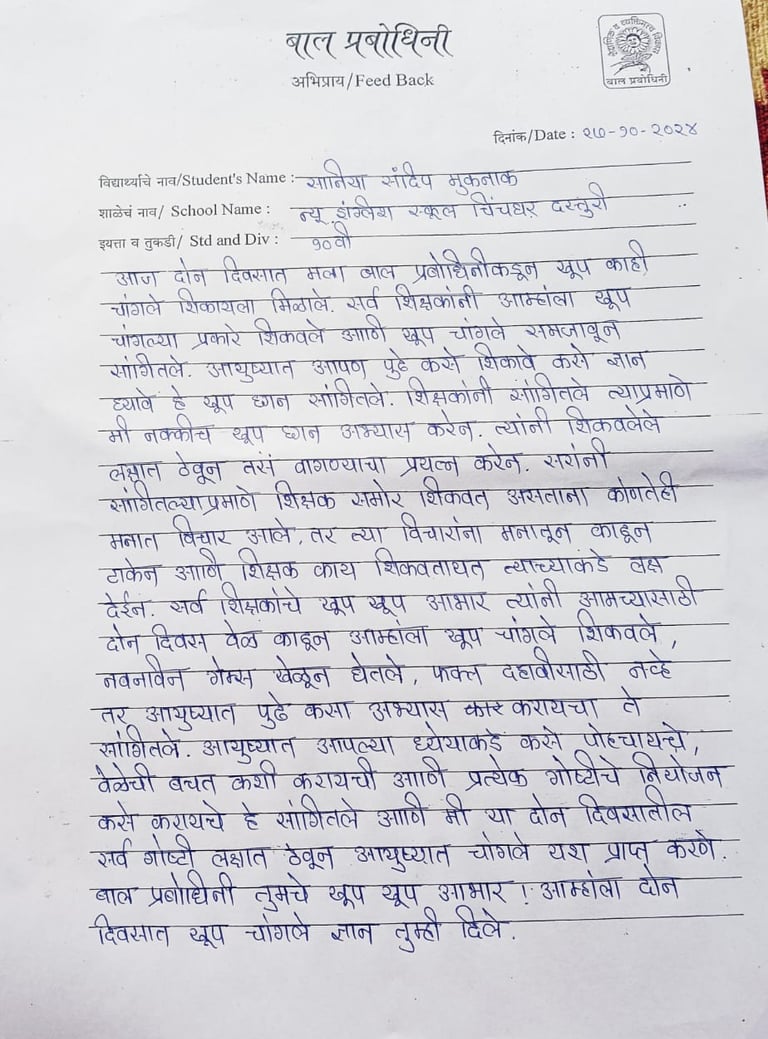 बाल प्रबोधिनी
अभिप्राय/Feed Back
बाल प्रबोधिनी
दिनांक/Date : २७-१०-२०२४
विद्यार्थ्याचे नाव/Student's Name : सानिया संदिप मुकनाक
शाळेचं नाव/ School Name : न्यू इंग्लिश स्कूल चिंचघर दस्तुरी
इयत्ता व तुकडी/ Std and Div : १०वी
आज दोन दिवसात मला बाल प्रबोधिनीकडून खूप काही
चांगले शिकायला मिळाले. सर्व शिक्षकांनी आम्हांला खूप
चांगल्या प्रकारे शिकवले आणि खूप चांगले समजावून
सांगितले. आयुष्यात आपण पुढे कसे शिकावे कसे ज्ञान
घ्यावे हे खूप छान सांगितले. शिक्षकांनी सांगितले त्याप्रमाणे
मी नक्कीच खूप छान अभ्यास करेन. त्यांनी शिकवलेले
लक्षात ठेवून तसं वागण्याचा प्रयत्न करेन. सरांनी
सांगितल्याप्रमाणे शिक्षक समोर शिकवत असताना कोणतेही
मनात विचार आले, तर त्या विचारांना मनातून काढून
टाकेन आणि शिक्षक काय शिकवतायत त्याच्याकडे लक्ष
देईन. सर्व शिक्षकांचे खूप खूप आभार त्यांनी आमच्यासाठी
दोन दिवस वेळ काढून आम्हांला खूप चांगले शिकवले,
नवनविन गेम्स खेळून घेतले, फक्त दहावीसाठी नव्हे
तर आयुष्यात पुढे कसा अभ्यास करायचा ते
सांगितले. आयुष्यात आपल्या ध्येयाकडे कसे पोहचायचे,
वेळेची बचत कशी करायची आणि प्रत्येक गोष्टीचे नियोजन
कसे करायचे हे सांगितले आणि मी या दोन दिवसातील
सर्व गोष्टी लक्षात ठेवून आयुष्यात चांगले यश प्राप्त करणे.
बाल प्रबोधिनी तुमचे खूप खूप आभार ! आम्हांला दोन
दिवसात खूप चांगले ज्ञान तुम्ही दिले.